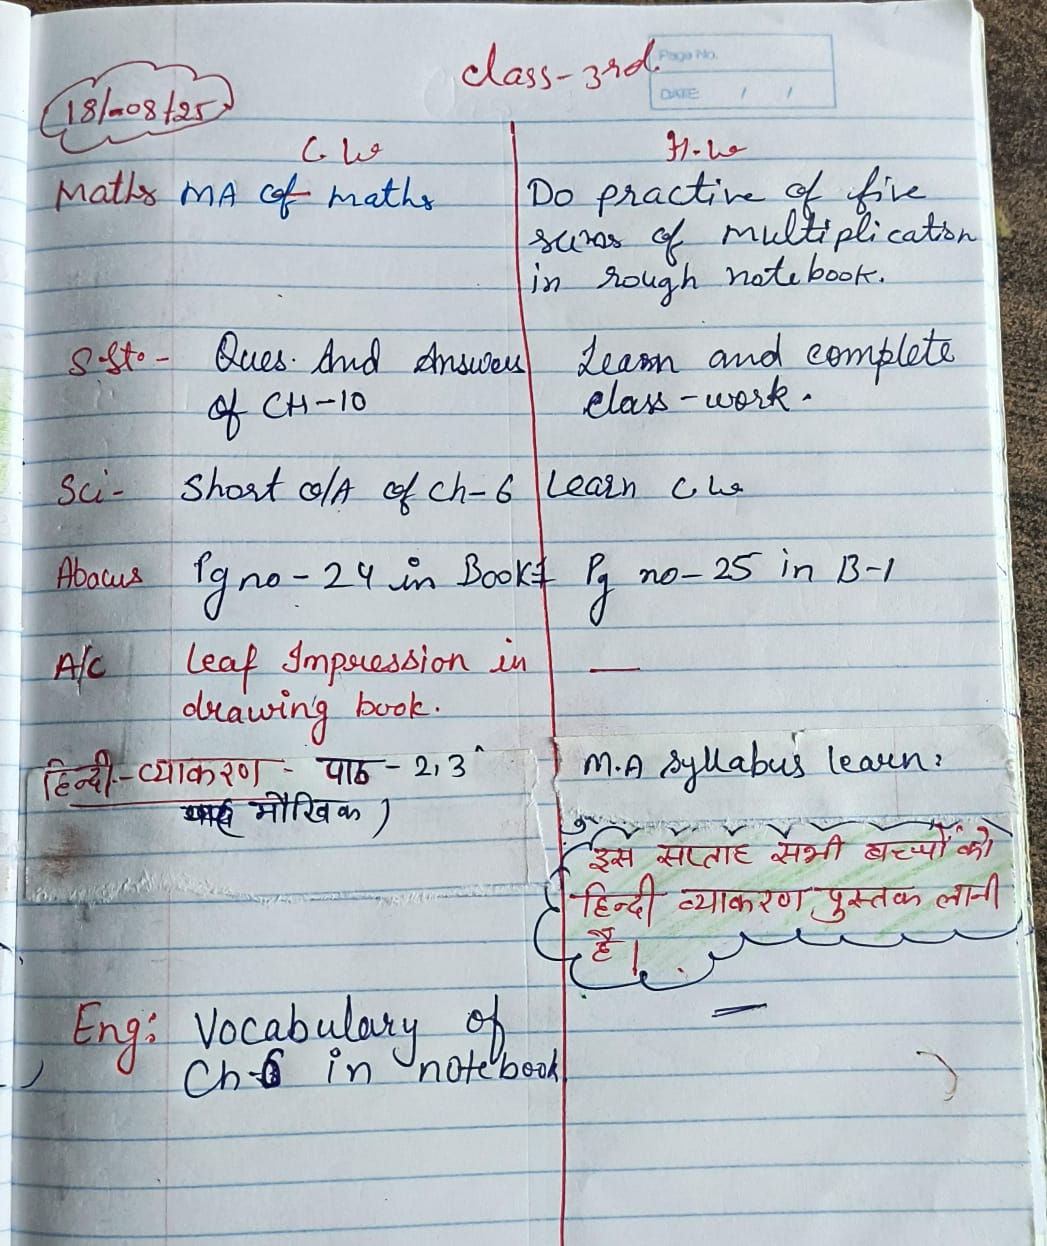 class-3rd.
Page No.
DATE / /
18/08/25
C.W
H.W
Maths MA of maths
Do practive of five
sums of multiplication
in rough notebook.
S.St. - Ques. And Answers
of CH-10
Learn and complete
class-work.
Sci- Short Q/A of Ch-6
Learn C.W
Abacus Pg no-24 in Book1
Pg no-25 in B-1
A/C Leaf Impression in
drawing book.
—
हिन्दी-व्याकरण - पाठ - 2,3
मौखिक)
M.A syllabus learn:
इस सप्ताह सभी बच्चों को
हिन्दी व्याकरण पुस्तक लानी
है।
Eng: Vocabulary of
Ch-6 in notebook
—